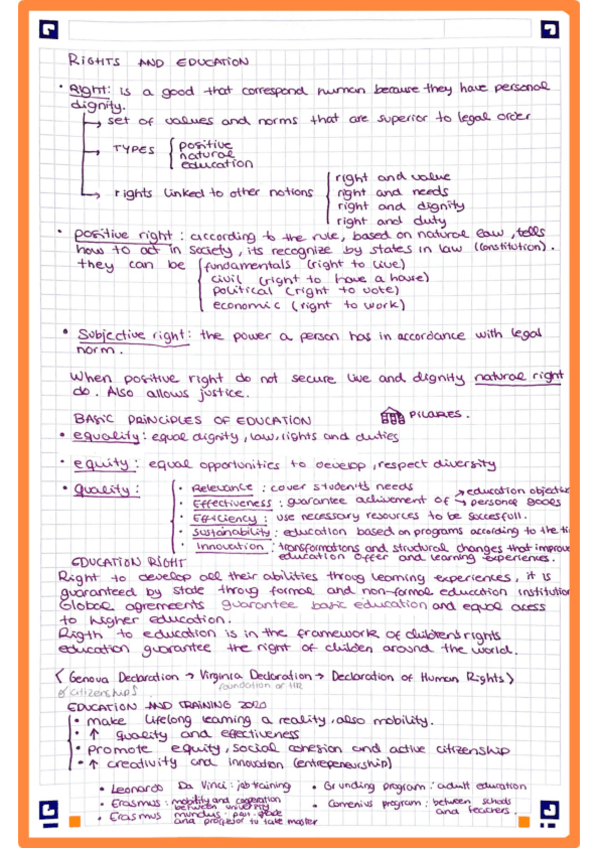 RIGHTS AND EDUCATION
• Right: is a good that correspond human because they have personal
dignity.
→ set of values and norms that are superior to legal order
→ TYPES { positive
natural
education
→ rights linked to other notions { right and value
right and needs
right and dignity
right and duty
• positive right: according to the rule, based on natural law, tells
how to act in society, its recognize by states in law (constitution).
they can be { fundamentals (right to live)
civil (right to have a house)
political (right to vote)
economic (right to work)
• Subjective right: the power a person has in accordance with legal
norm.
When positive right do not secure live and dignity natural right
do. Also allows justice.
BASIC PRINCIPLES OF EDUCATION PILARES.
• equality: equal dignity, law, rights and duties
• equity: equal opportunities to develop, respect diversity
• quality: { • Relevance: cover students needs
• Effectiveness: guarantee achivement of → education objective
→ personal goods
• Efficiency: use necessary resources to be succesfull.
• Sustainability: education based on programs according to the ti
• Innovation: transformations and structural changes that improve
education offer and learning experiences.
EDUCATION RIGHT
Right to develop all their abilities throug learning experiences, it is
guaranteed by state throug formal and non-formal education institution
Global agreements guarantee basic education and equal acess
to higher education.
Rigth to education is in the framework of children's rights
education guarantee the right of childen around the world.
( Genova Declaration → Virginia Declaration → Declaration of Human Rights )
foundation of HR
& citizenship
EDUCATION AND TRAINING 2020
• make lifelong learning a reality, also mobility.
• ↑ quality and effectiveness
• promote equity, social cohesion and active citizenship
• ↑ creativity and innovation (entrepeneurship)
• Leonardo Da Vinci: job training
• Grunding program: adult education
• Erasmus: mobility and cooperation
between university
• Comenius program: between schools
and teachers.
• Erasmus mundus:
and professor to take master